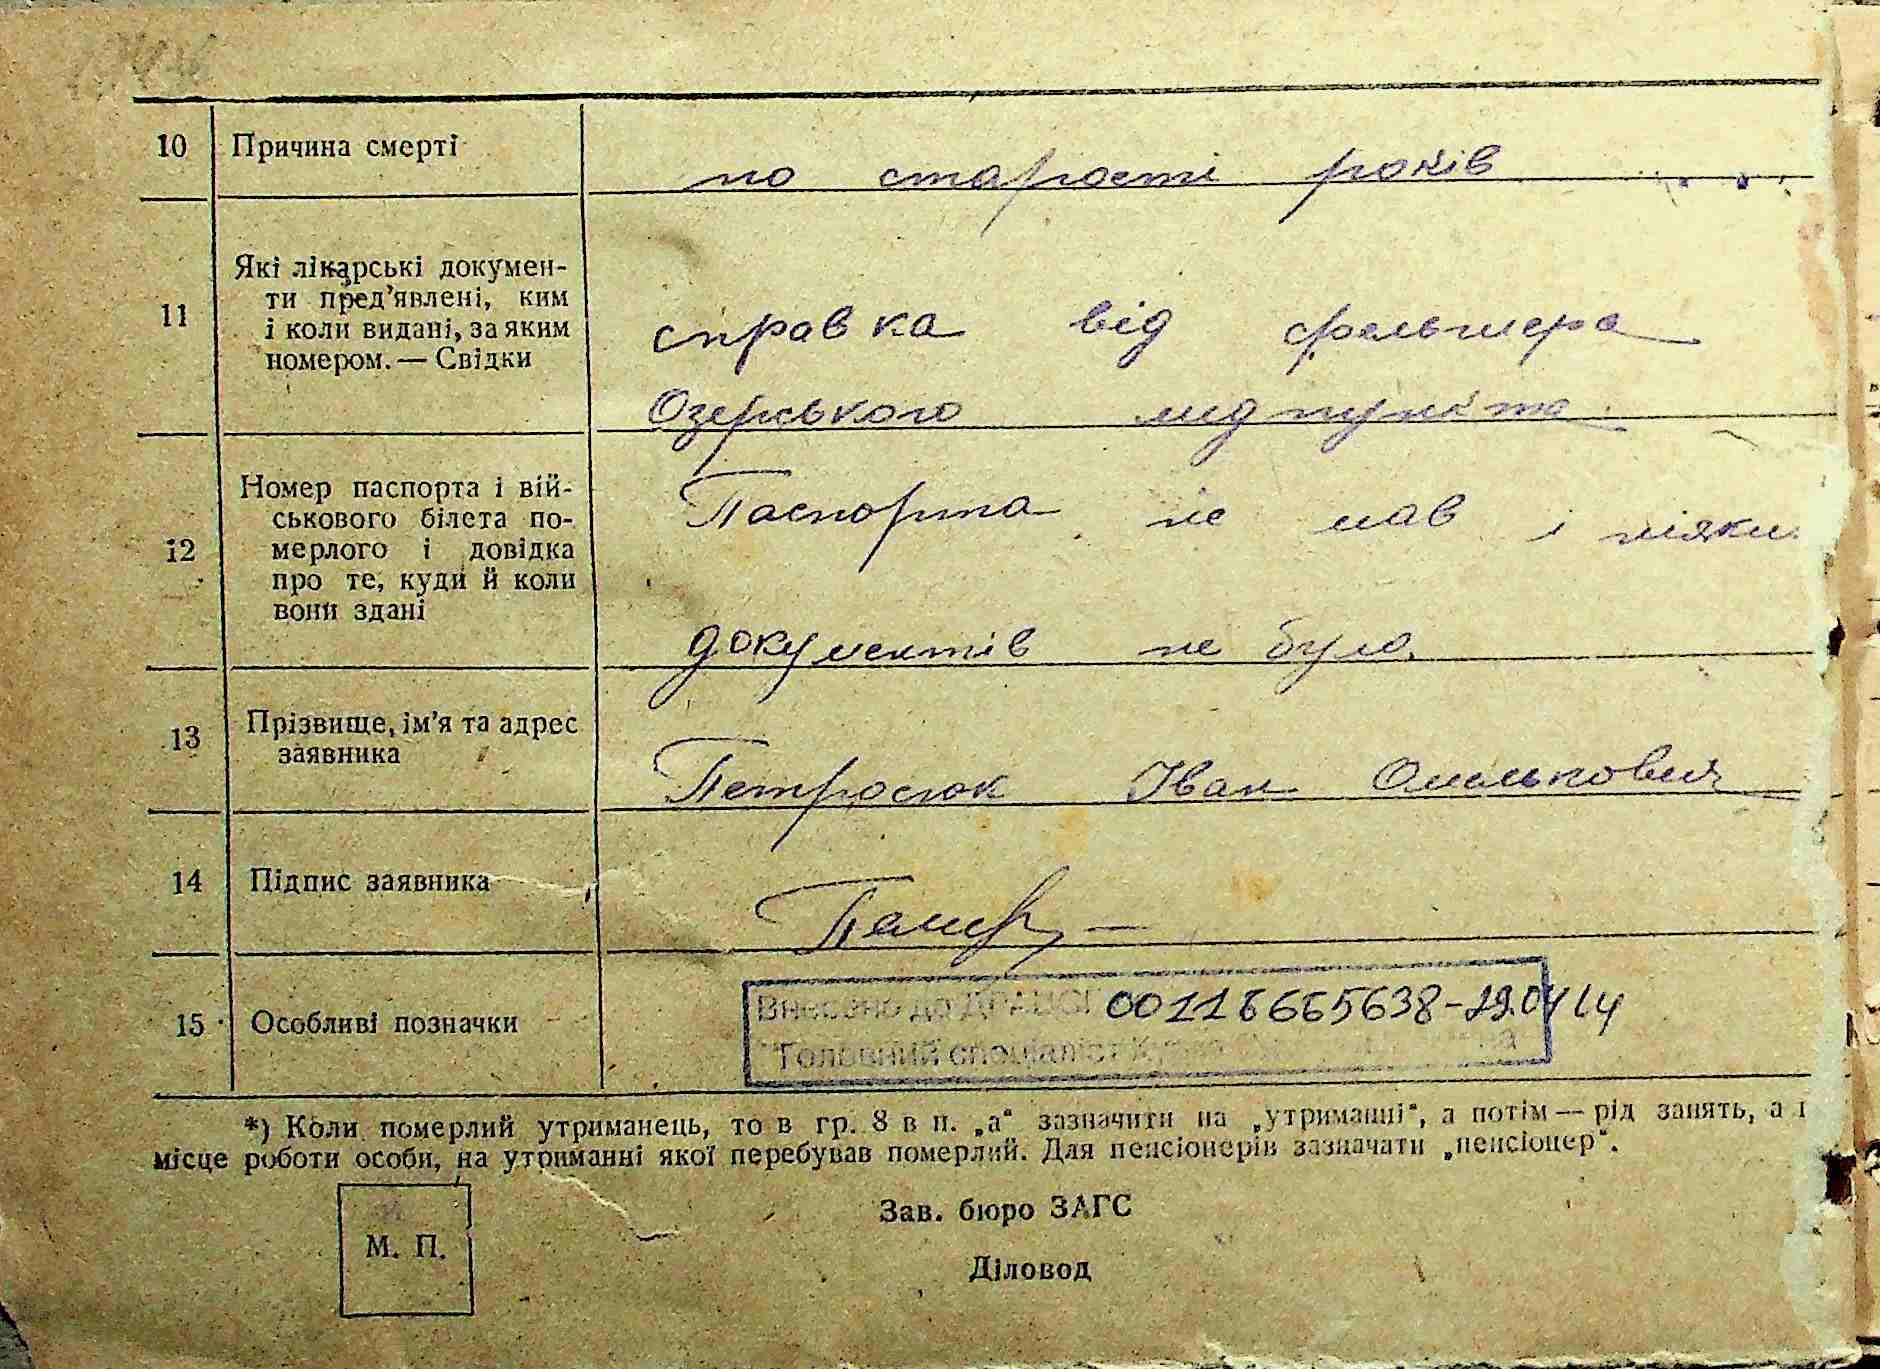 10 Причина смерті по старості років
11 Які лікарські докумен-
ти пред'явлені, ким
і коли видані, за яким справка від фельшера
номером. — Свідки
Озерського медпункта
Номер паспорта і вій- Паспорта не мав і ніяки
ськового білета по-
12 мерлого і довідка
про те, куди й коли
вони здані
документів не було.
13 Прізвище, ім'я та адрес
заявника Петросюк Іван Омелькович
14 Підпис заявника
15 Особливі позначки
Внесено до ДРАЦСГ 00118665638-29.04 14
Головний спеціаліст
*) Коли померлий утриманець, то в гр. 8 в п. „а“ зазначити на „утриманні“, а потім — рід занять, а і
місце роботи особи, на утриманні якої перебував померлий. Для пенсіонерів зазначати „пенсіонер“.
Зав. бюро ЗАГС
М. П.
Діловод